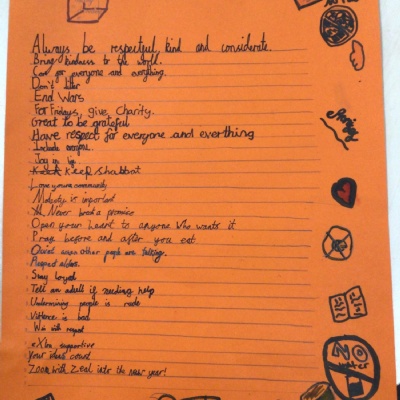 Always be respectful, kind and considerate.
Bring kindness to the world.
Care for everyone and everything.
Don't litter
End Wars
For Fridays, give charity.
Great to be grateful
Have respect for everyone and everthing
Include everyone.
Joy is
Keep shabbat
Love your community
Modesty is important
Never break a promise
Open your heart to anyone who wants it
Pray before and after you eat
Quiet when other people are talking.
Respect elders.
Stay loyal
Tell an adult if needing help
Undermining people is rude
Violence is bad
Win with respect
eXtra supportive
Your ideas count
Zoom with Zeal into the new year!
NO